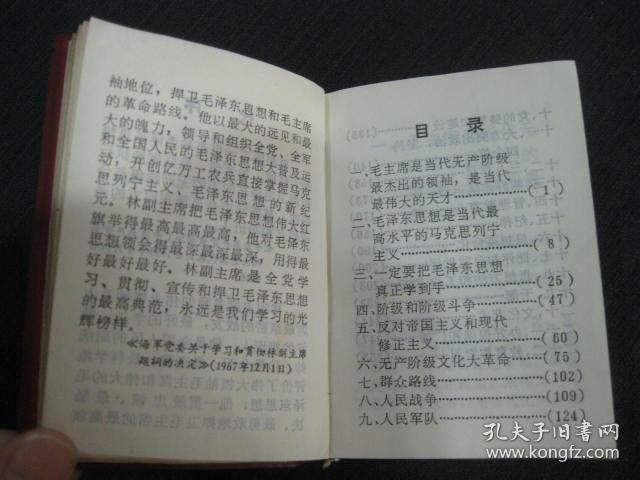 袖地位，捍卫毛泽东思想和毛主席
的革命路线。他以最大的远见和最
大的魄力，领导和组织全党、全军
和全国人民的毛泽东思想大普及运
动，开创亿万工农兵直接掌握马克
思列宁主义、毛泽东思想的新纪
元。林副主席把毛泽东思想伟大红
旗举得最高最高最高，他对毛泽东
思想领会得最深最深最深，用得最
好最好最好。林副主席是全党学
习、贯彻、宣传和捍卫毛泽东思想
的最高典范，永远是我们学习的光
辉榜样。
《海军党委关于学习和贯彻林副主席
题词的决定》(1967年12月1日)
目录
一、毛主席是当代无产阶级
最杰出的领袖，是当代
最伟大的天才……………(1)
二、毛泽东思想是当代最
高水平的马克思列宁
主义……………(8)
三、一定要把毛泽东思想
真正学到手……………(25)
四、阶级和阶级斗争……………(47)
五、反对帝国主义和现代
修正主义……………(60)
六、无产阶级文化大革命……(75)
七、群众路线……………(102)
八、人民战争……………(109)
九、人民军队……………(124)
孔夫子旧书网
www.kongfz.com